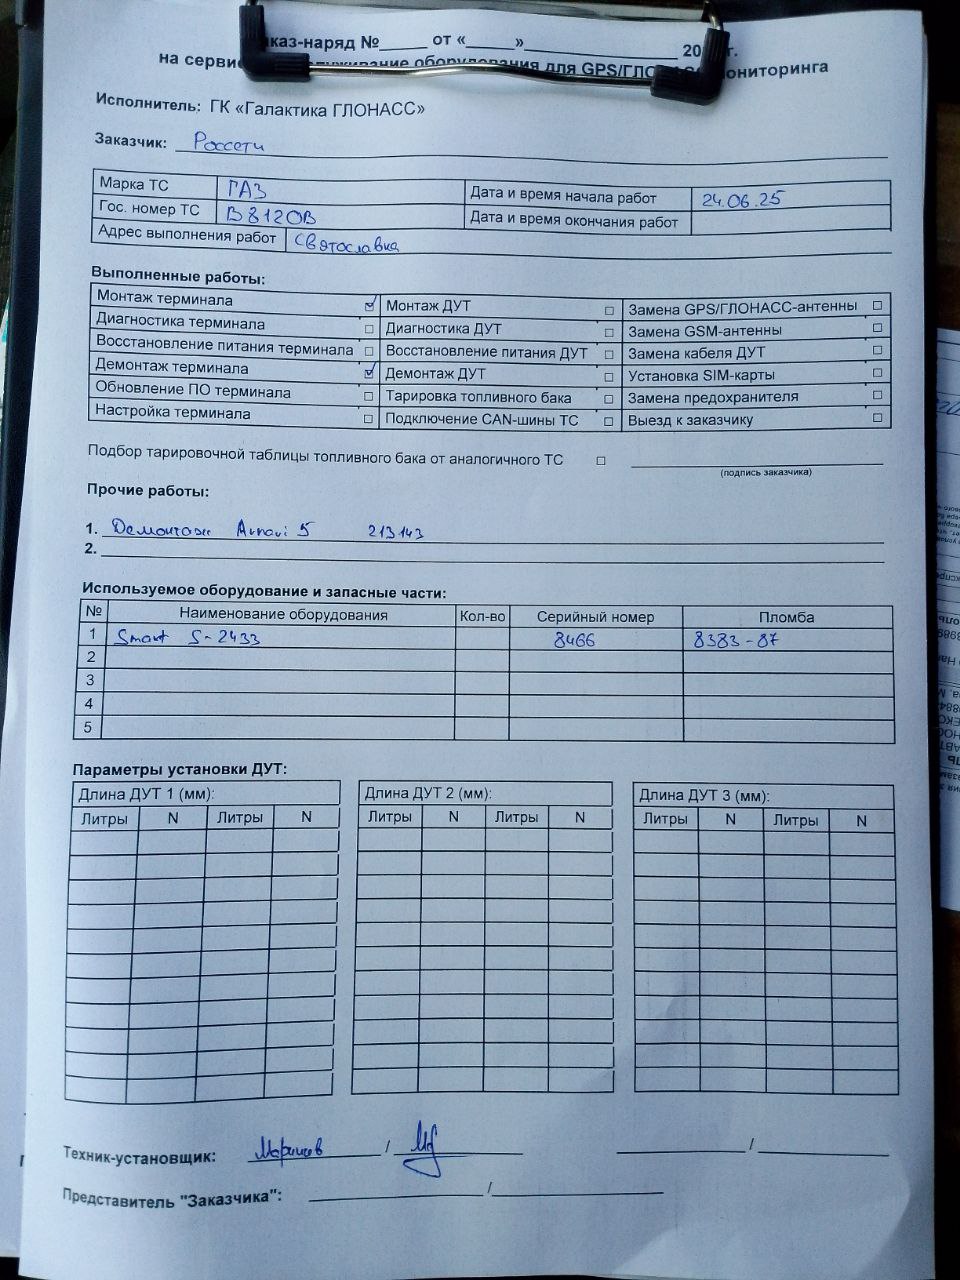 аказ-наряд №_____ от «_____»____________________ 20 г.
на серви служивание оборудования для GPS/ГЛО ониторинга
Исполнитель: ГК «Галактика ГЛОНАСС»
Заказчик: Россети
Марка ТС ГАЗ Дата и время начала работ 24.06.25
Гос. номер ТС В812ОВ Дата и время окончания работ
Адрес выполнения работ Святославка
Выполненные работы:
Монтаж терминала ☑ Монтаж ДУТ ☐ Замена GPS/ГЛОНАСС-антенны ☐
Диагностика терминала ☐ Диагностика ДУТ ☐ Замена GSM-антенны ☐
Восстановление питания терминала ☐ Восстановление питания ДУТ ☐ Замена кабеля ДУТ ☐
Демонтаж терминала ☑ Демонтаж ДУТ ☐ Установка SIM-карты ☐
Обновление ПО терминала ☐ Тарировка топливного бака ☐ Замена предохранителя ☐
Настройка терминала ☐ Подключение CAN-шины ТС ☐ Выезд к заказчику ☐
Подбор тарировочной таблицы топливного бака от аналогичного ТС ☐
(подпись заказчика)
Прочие работы:
1. Демонтаж Arnavi 5 213143
2.
Используемое оборудование и запасные части:
№ Наименование оборудования Кол-во Серийный номер Пломба
1 Smart S-2433 8466 8383-87
2
3
4
5
Параметры установки ДУТ:
Длина ДУТ 1 (мм): Длина ДУТ 2 (мм): Длина ДУТ 3 (мм):
Литры N Литры N Литры N Литры N Литры N Литры N
Техник-установщик: /
Представитель "Заказчика": /